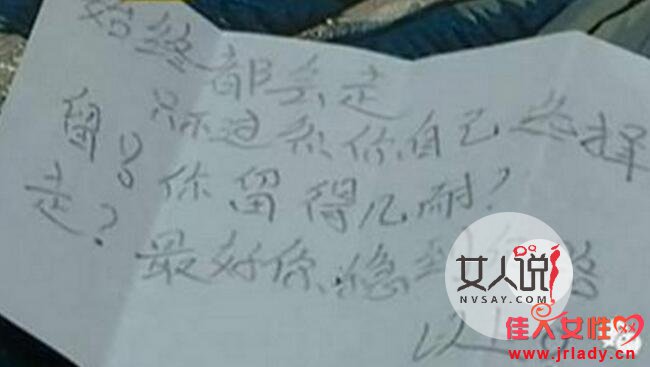 始终都会走
只不过系你自己选择
留? 你留得几耐?
走? 最好你
女人说
NVSAY.COM
佳人女性
www.jrlady.com